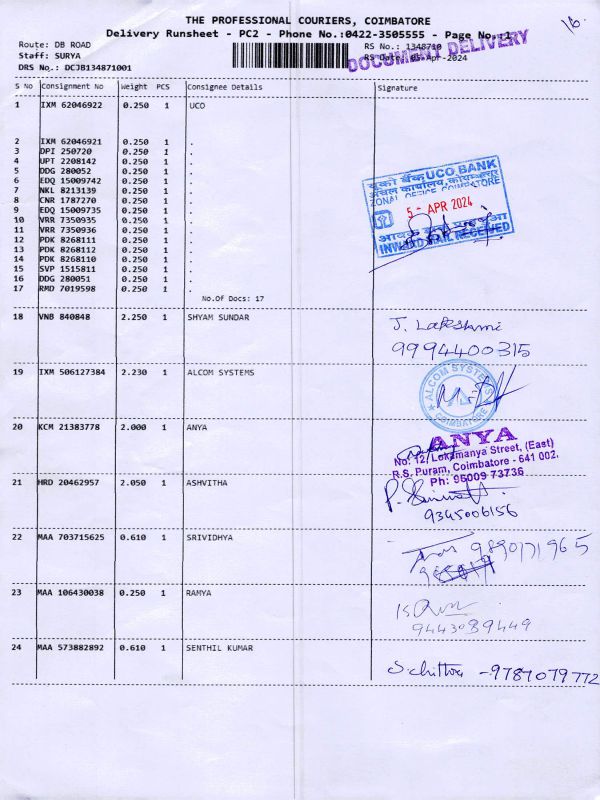 THE PROFESSIONAL COURIERS, COIMBATORE
16.
Delivery Runsheet - PC2 - Phone No.:0422-3505555 - Page No.:1
Route: DB ROAD
RS No.: 1348710
DOCUMENT DELIVERY
Staff: SURYA
RS Date: 05-Apr-2024
DRS No.: DCJB134871001
S No Consignment No Weight PCS Consignee Details Signature
1 IXM 62046922 0.250 1 UCO
2 IXM 62046921 0.250 1 .
3 DPI 250720 0.250 1 .
4 UPT 2208142 0.250 1 .
5 DDG 280052 0.250 1 .
6 EDQ 15009742 0.250 1 .
7 NKL 8213139 0.250 1 .
8 CNR 1787270 0.250 1 .
9 EDQ 15009735 0.250 1 .
10 VRR 7350935 0.250 1 .
11 VRR 7350936 0.250 1 .
12 PDK 8268111 0.250 1 .
13 PDK 8268112 0.250 1 .
14 PDK 8268110 0.250 1 .
15 SVP 1515811 0.250 1 .
16 DDG 280051 0.250 1 .
17 RMD 7019598 0.250 1 .
No.Of Docs: 17
यूको बैंक UCO BANK
अंचल कार्यालय, कोयम्बत्तूर
ZONAL OFFICE, COIMBATORE
5 - APR 2024
INWARD MAIL RECEIVED
18 VNB 840848 2.250 1 SHYAM SUNDAR
J. Lakshmi
9994400315
19 IXM 506127384 2.230 1 ALCOM SYSTEMS
ALCOM SYSTEMS
COIMBATORE
20 KCM 21383778 2.000 1 ANYA
ANYA
No. 12, Lokamanya Street, (East)
R.S. Puram, Coimbatore - 641 002.
Ph: 96009 73736
21 HRD 20462957 2.050 1 ASHVITHA
9345006156
22 MAA 703715625 0.610 1 SRIVIDHYA
23 MAA 106430038 0.250 1 RAMYA
9443089449
24 MAA 573882892 0.610 1 SENTHIL KUMAR
S.chitra - 9787079772